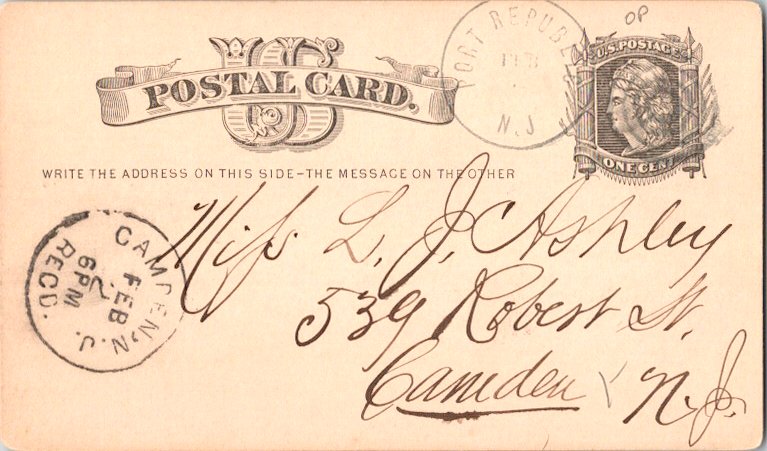 OP
US
POSTAL CARD.
U.S. POSTAGE
ONE CENT
PORT REPUBLIC
FEB
N.J
WRITE THE ADDRESS ON THIS SIDE–THE MESSAGE ON THE OTHER
CAMDEN, N.J.
FEB
2
6PM
RECD.
Miss L. J. Ashley
539 Robert St.
Camden N.J.